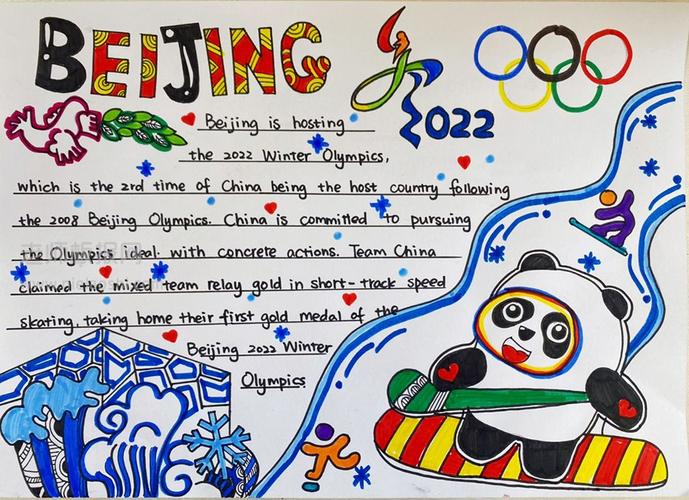 BEIJING
2022
Beijing is hosting
the 2022 Winter Olympics,
which is the 2rd time of China being the host country following
the 2008 Beijing Olympics. China is committed to pursuing
the Olympics ideal with concrete actions. Team China
claimed the mixed team relay gold in short-track speed
skating, taking home their first gold medal of the
Beijing 2022 Winter
Olympics